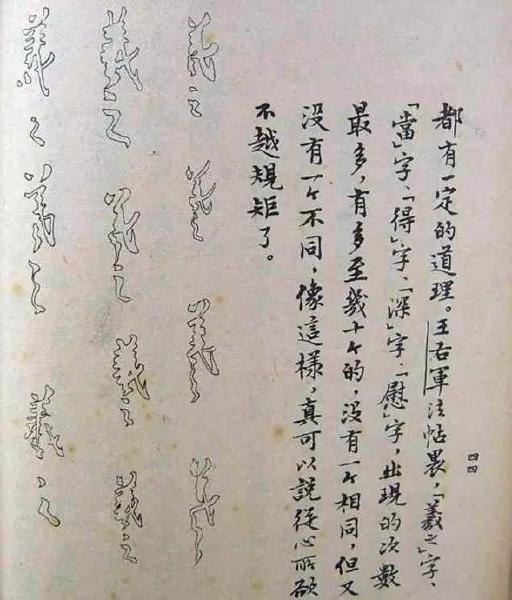 四四
都有一定的道理。王右軍法帖裏,「羲之」字、
「當」字、「得」字、「深」字、「慰」字,出現的次數
最多,有多至幾十个的,没有一个相同,但又
没有一个不同,像這樣,真可以説從心所欲
不越規矩了。
羲之 羲之 羲之 羲之
羲之 羲之 羲之 羲之
羲之 羲之 羲之